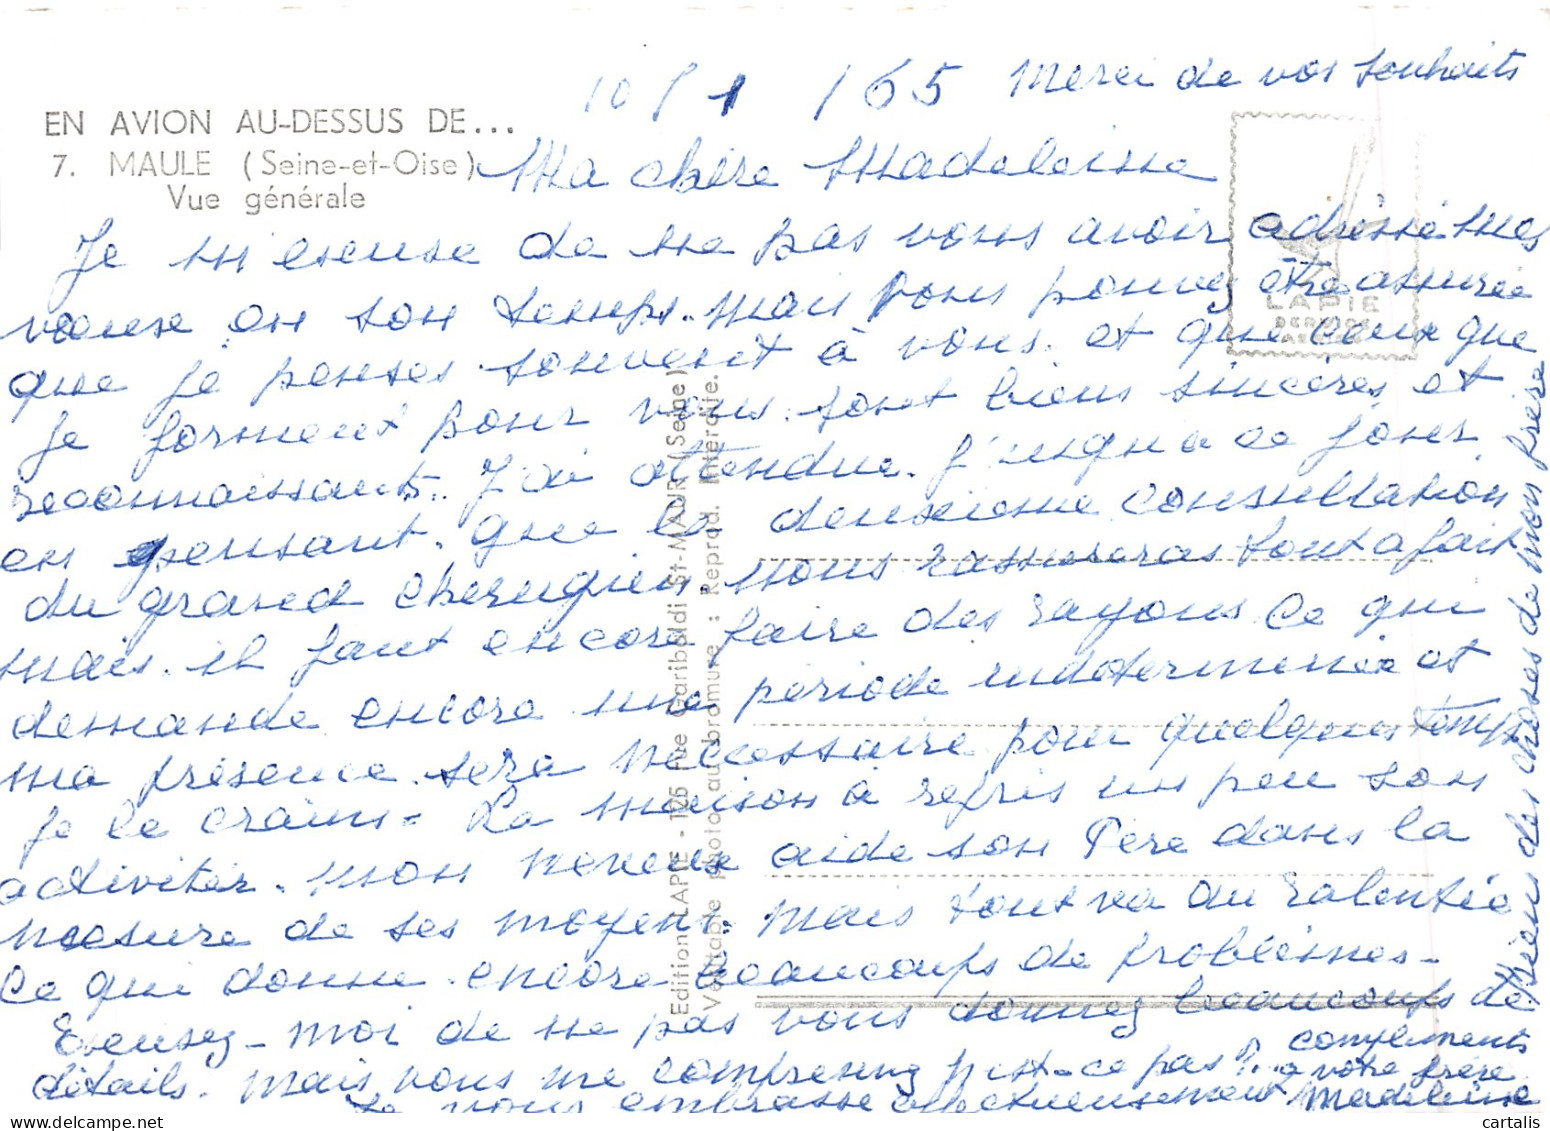 10/1/65 Merci de vos souhaits
EN AVION AU-DESSUS DE...
7. MAULE (Seine-et-Oise)
Vue générale
Ma chère Madeleine
Je m'excuse de ne pas vous avoir adressé mes
voeuse en son temps. mais vous pouvez être assurée
que je penses souvent à vous. et que ceux que
je forment pour vous. sont biens sincères et
reconnaissants. J'ai attendue. j'usqu'a ce jour,
en pensant. que la deuxième consultation
du grand cherugien nous rassureras tout a fait
mais. il faut encore faire des rayons Ce qui
demande encore une période indéterminée et
ma présence. sera nécessaire pour quelques temps
je le crains. La maison à repris un peu son
activitér. mon neveux aide son Père dans la
mesure de ses moyens. mais tout va au ralentie
Ce qui donne encore beaucoups de problèmes.
Excusez-moi de ne pas vous donnez beaucoups de
détails. mais vous me comprenez n'est-ce pas?
Je vous embrasse affectueusement Madeleine
compliments
a votre frère
Bien des choses de mon frère
LAPIE
SERVICE
Edition LAPIE - 126 rue Garibaldi St-MAUR (Seine)
Véritable photo au bromure : Reprod. Interdite.
cartalis